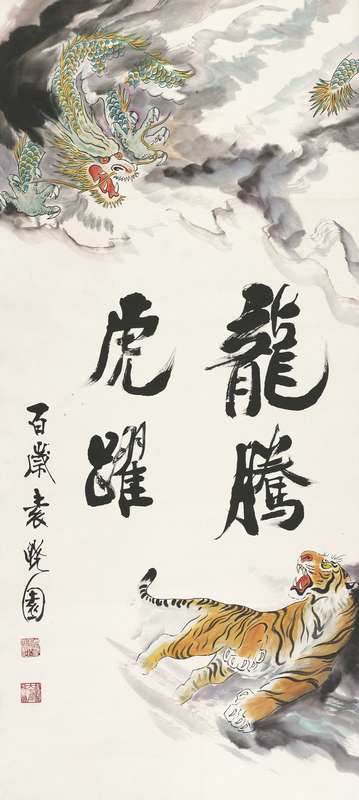 龍騰
虎躍
百歲袁曉園